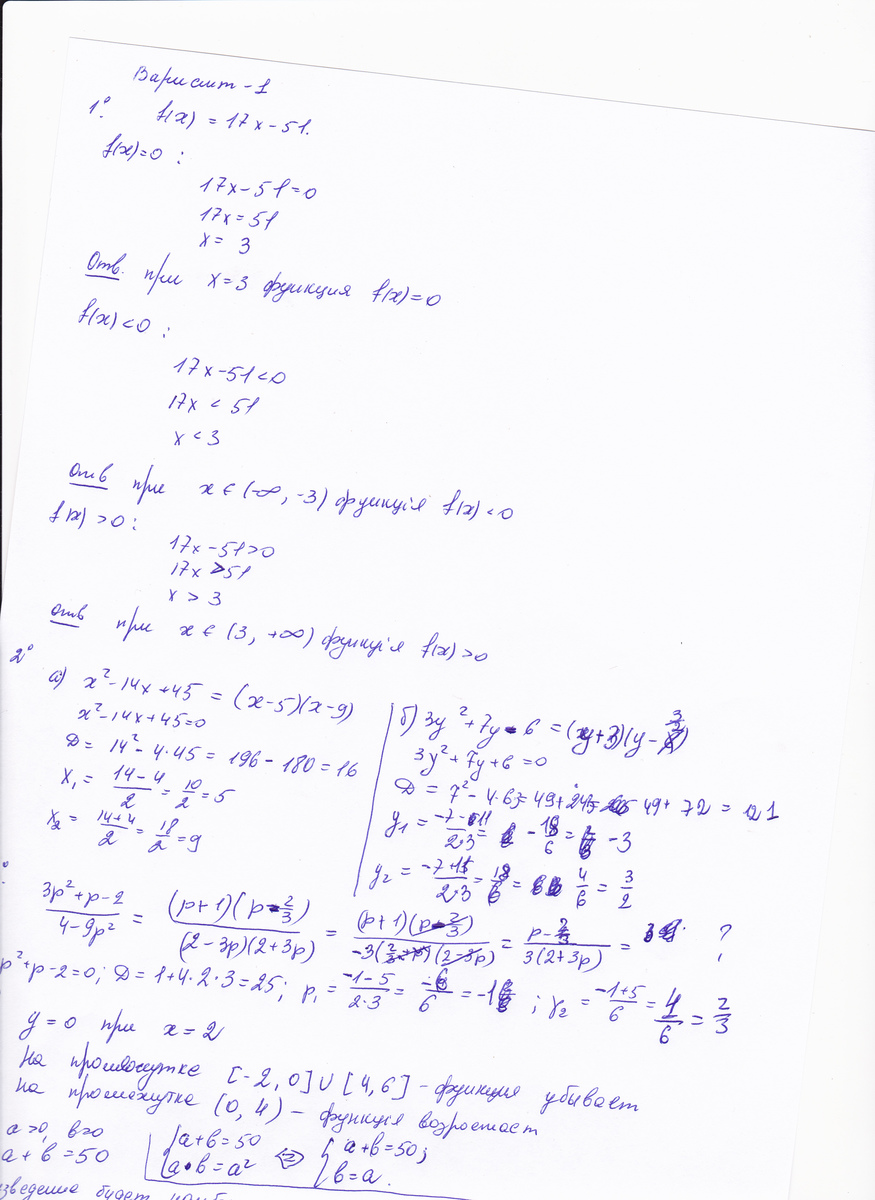 Вариант - 1
1°. f(x) = 17x - 51.
f(x)=0 :
17x - 51 = 0
17x = 51
x = 3
Отв. при x=3 функция f(x)=0
f(x)<0 :
17x - 51 < 0
17x < 51
x < 3
Отв при x ∈ (-∞, -3) функція f(x)<0
f(x)>0 :
17x - 51 > 0
17x > 51
x > 3
Отв при x ∈ (3, +∞) функція f(x)>0
2°
а) x² - 14x + 45 = (x-5)(x-9)
x² - 14x + 45 = 0
D = 14² - 4·45 = 196 - 180 = 16
x₁ = (14-4)/2 = 10/2 = 5
x₂ = (14+4)/2 = 18/2 = 9
б) 3y² + 7y - 6 = (y+3)(y -
3y² + 7y + 6 = 0
D = 7² - 4·6 = 49 + 24 = 49 + 72 = 121
y₁ = (-7-11)/(2·3) = -18/6 = -3
y₂ = (-7+11)/(2·3) = 4/6 = 3/2
(3p²+p-2)/(4-9p²) = (p+1)(p-2/3)/((2-3p)(2+3p)) = (p+1)(p-2/3)/(-3(2/3+p)(2-3p)) = (p-2/3)/(3(2+3p)) = ?
p²+p-2=0; D = 1+4·2·3 = 25; p₁ = (-1-5)/(2·3) = -6/6 = -1 ; p₂ = (-1+5)/6 = 4/6 = 2/3
y=0 при x=2
На промежутке [-2, 0] ∪ [4, 6] - функция убывает
На промежутке (0, 4) - функція возростает
a>0, b>0
a + b = 50
{a+b=50 ⇔ {a+b=50;
a·b=a² b=a.
зведение будет